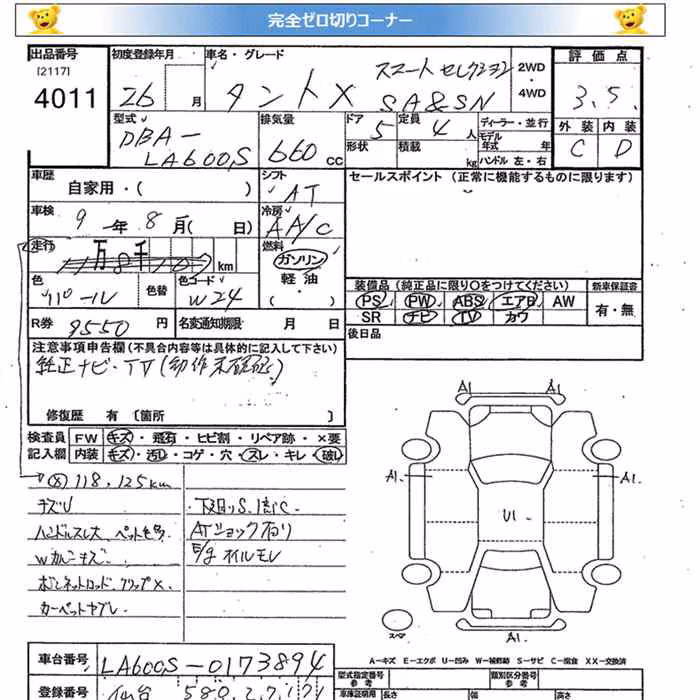 完全ゼロ切りコーナー
出品番号 初度登録年月 車名・グレード 評価点
[2117] スマートセレクション 2WD・
4011 26 月 タントX SA&SN 4WD 3.5
型式 排気量 ドア 定員 ディーラー・並行 外装 内装
DBA- 5 4人 モデル年式 年 C D
LA600S 660cc 形状 積載 kg ハンドル 左・右
車歴 シフト セールスポイント(正常に機能するものに限ります)
自家用・( ) AT
車検 冷房
9年8月( 日) AA/C
走行 万 千 km 燃料
ガソリン
色 色替 色コード 軽油・ 装備品(純正品に限り○をつけてください) 新車保証書
パール W24 ( ) PS PW ABS エアB AW 有・無
SR ナビ TV カワ
R券 9550円 名変通知期限 月 日 後日品
注意事項申告欄(不具合内容等は具体的に記入して下さい)
純正ナビ・TV(動作未確認)
修復歴 有〔箇所 〕
検査員 FW キズ・飛有・ヒビ割・リペア跡・×要
記入欄 内装 キズ・汚レ・コゲ・穴・スレ・キレ・破レ
118,125km
キズU 下廻りS.
ハンドルスレ大 ATショック有り
Wカンキズ・ E/gオイルモレ
ボンネットロッド、クリップ×、
カーペットヤブレ・
A1
A1. A1.
U1.
A1.
スペア
A-キズ E-エクボ U-凹み W-補修跡 S-サビ C-腐食 XX-交換済
車台番号 LA600S-0173894 型式指定番号 類別区分番号
参考 参考
登録番号 仙台 580 車庫証明用 長さ 幅 高さ